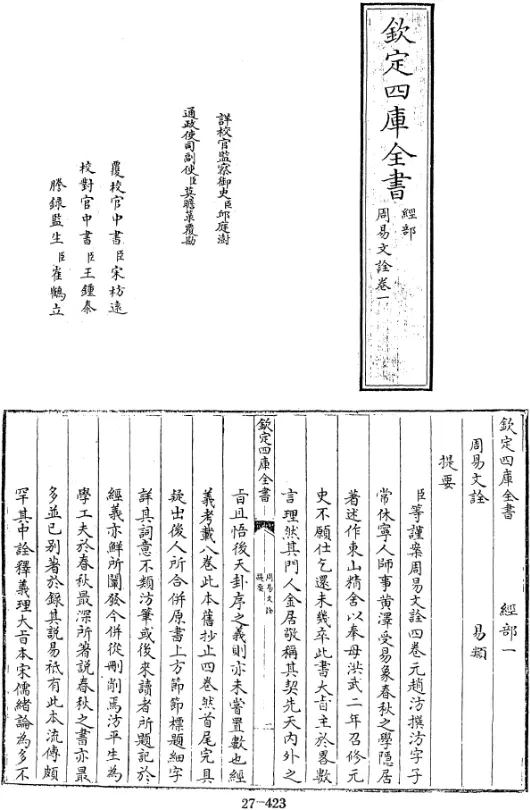 欽定四庫全書
經部
周易文詮卷一
詳校官監察御史臣邱庭漋
通政使司副使臣莫瞻菉覆勘
覆校官中書臣宋枋遠
校對官中書臣王鍾泰
謄錄監生臣崔鶴立
欽定四庫全書 經部一
周易文詮 易類
提要
臣等謹案周易文詮四卷元趙汸撰汸字子
常休寧人師事黃澤受易象春秋之學隱居
著述作東山精舍以奉母洪武二年召修元
史不願仕乞還未幾卒此書大旨主於畧數
言理然其門人金居敬稱其契先天內外之
欽定四庫全書
周易文詮
提要
二
旨且悟後天卦序之義則亦未嘗置數也經
義考載八卷此本舊抄止四卷然首尾完具
疑出後人所合併原書上方節節標題細字
詳其詞意不類汸筆或後來讀者所題記於
經義亦鮮所闡發今併從刪削焉汸平生為
學工夫於春秋最深所著說春秋之書亦最
多並已別著於錄其說易祇有此本流傳頗
罕其中詮釋義理大旨本宋儒緒論為多不
27-423